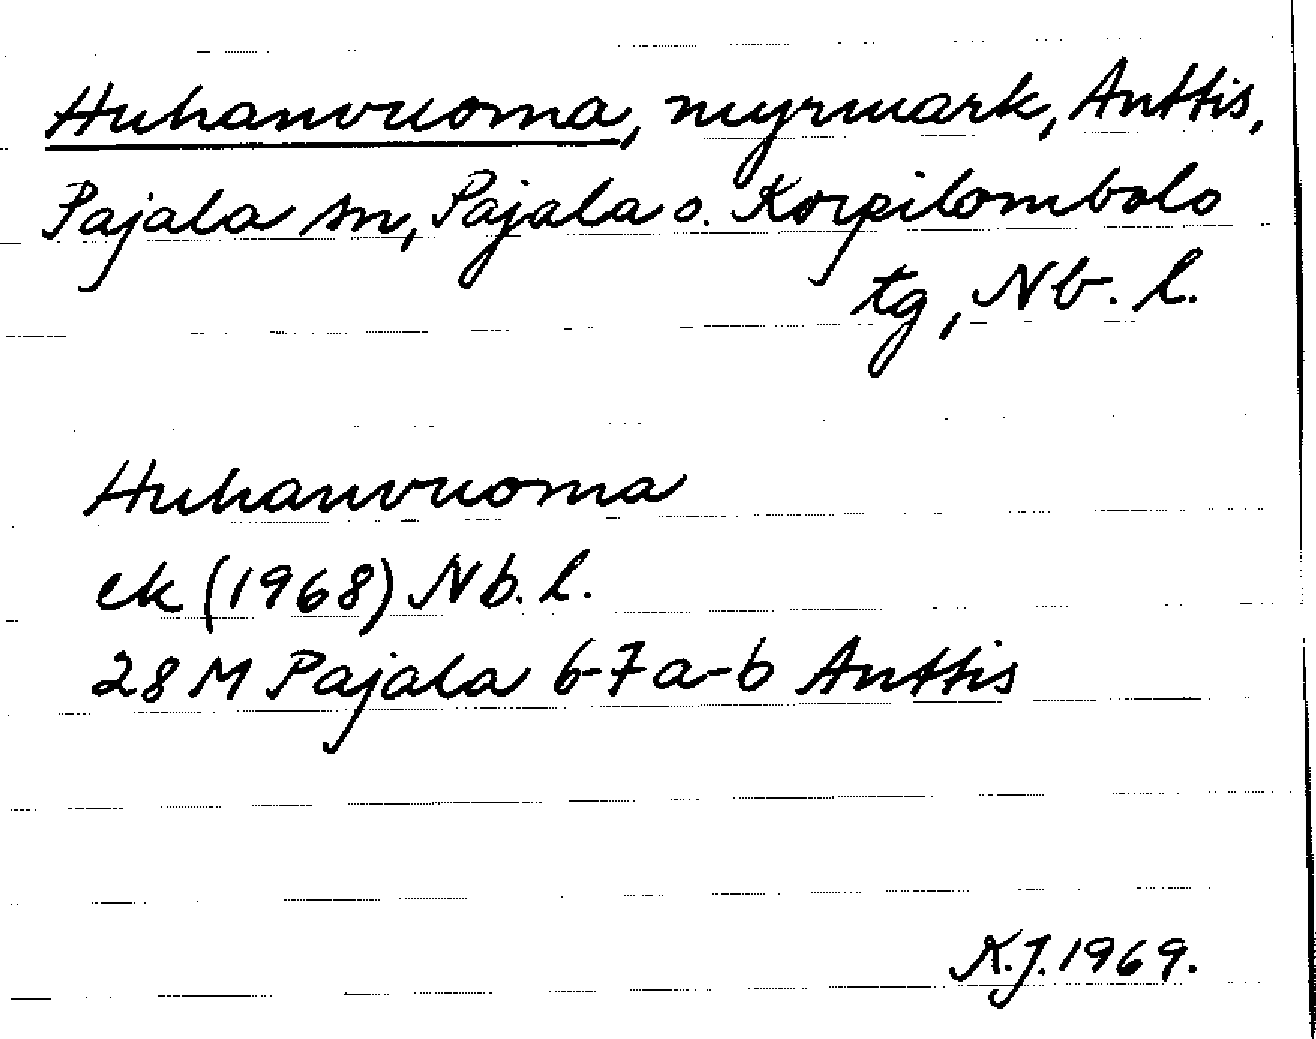 Huhanvuoma, myrmark, Anttis,
Pajala sn, Pajala o. Korpilombolo
tg, Nb. l.
Huhanvuoma
ek (1968) Nb. l.
28 M Pajala 6-7 a-b Anttis
K.J. 1969.